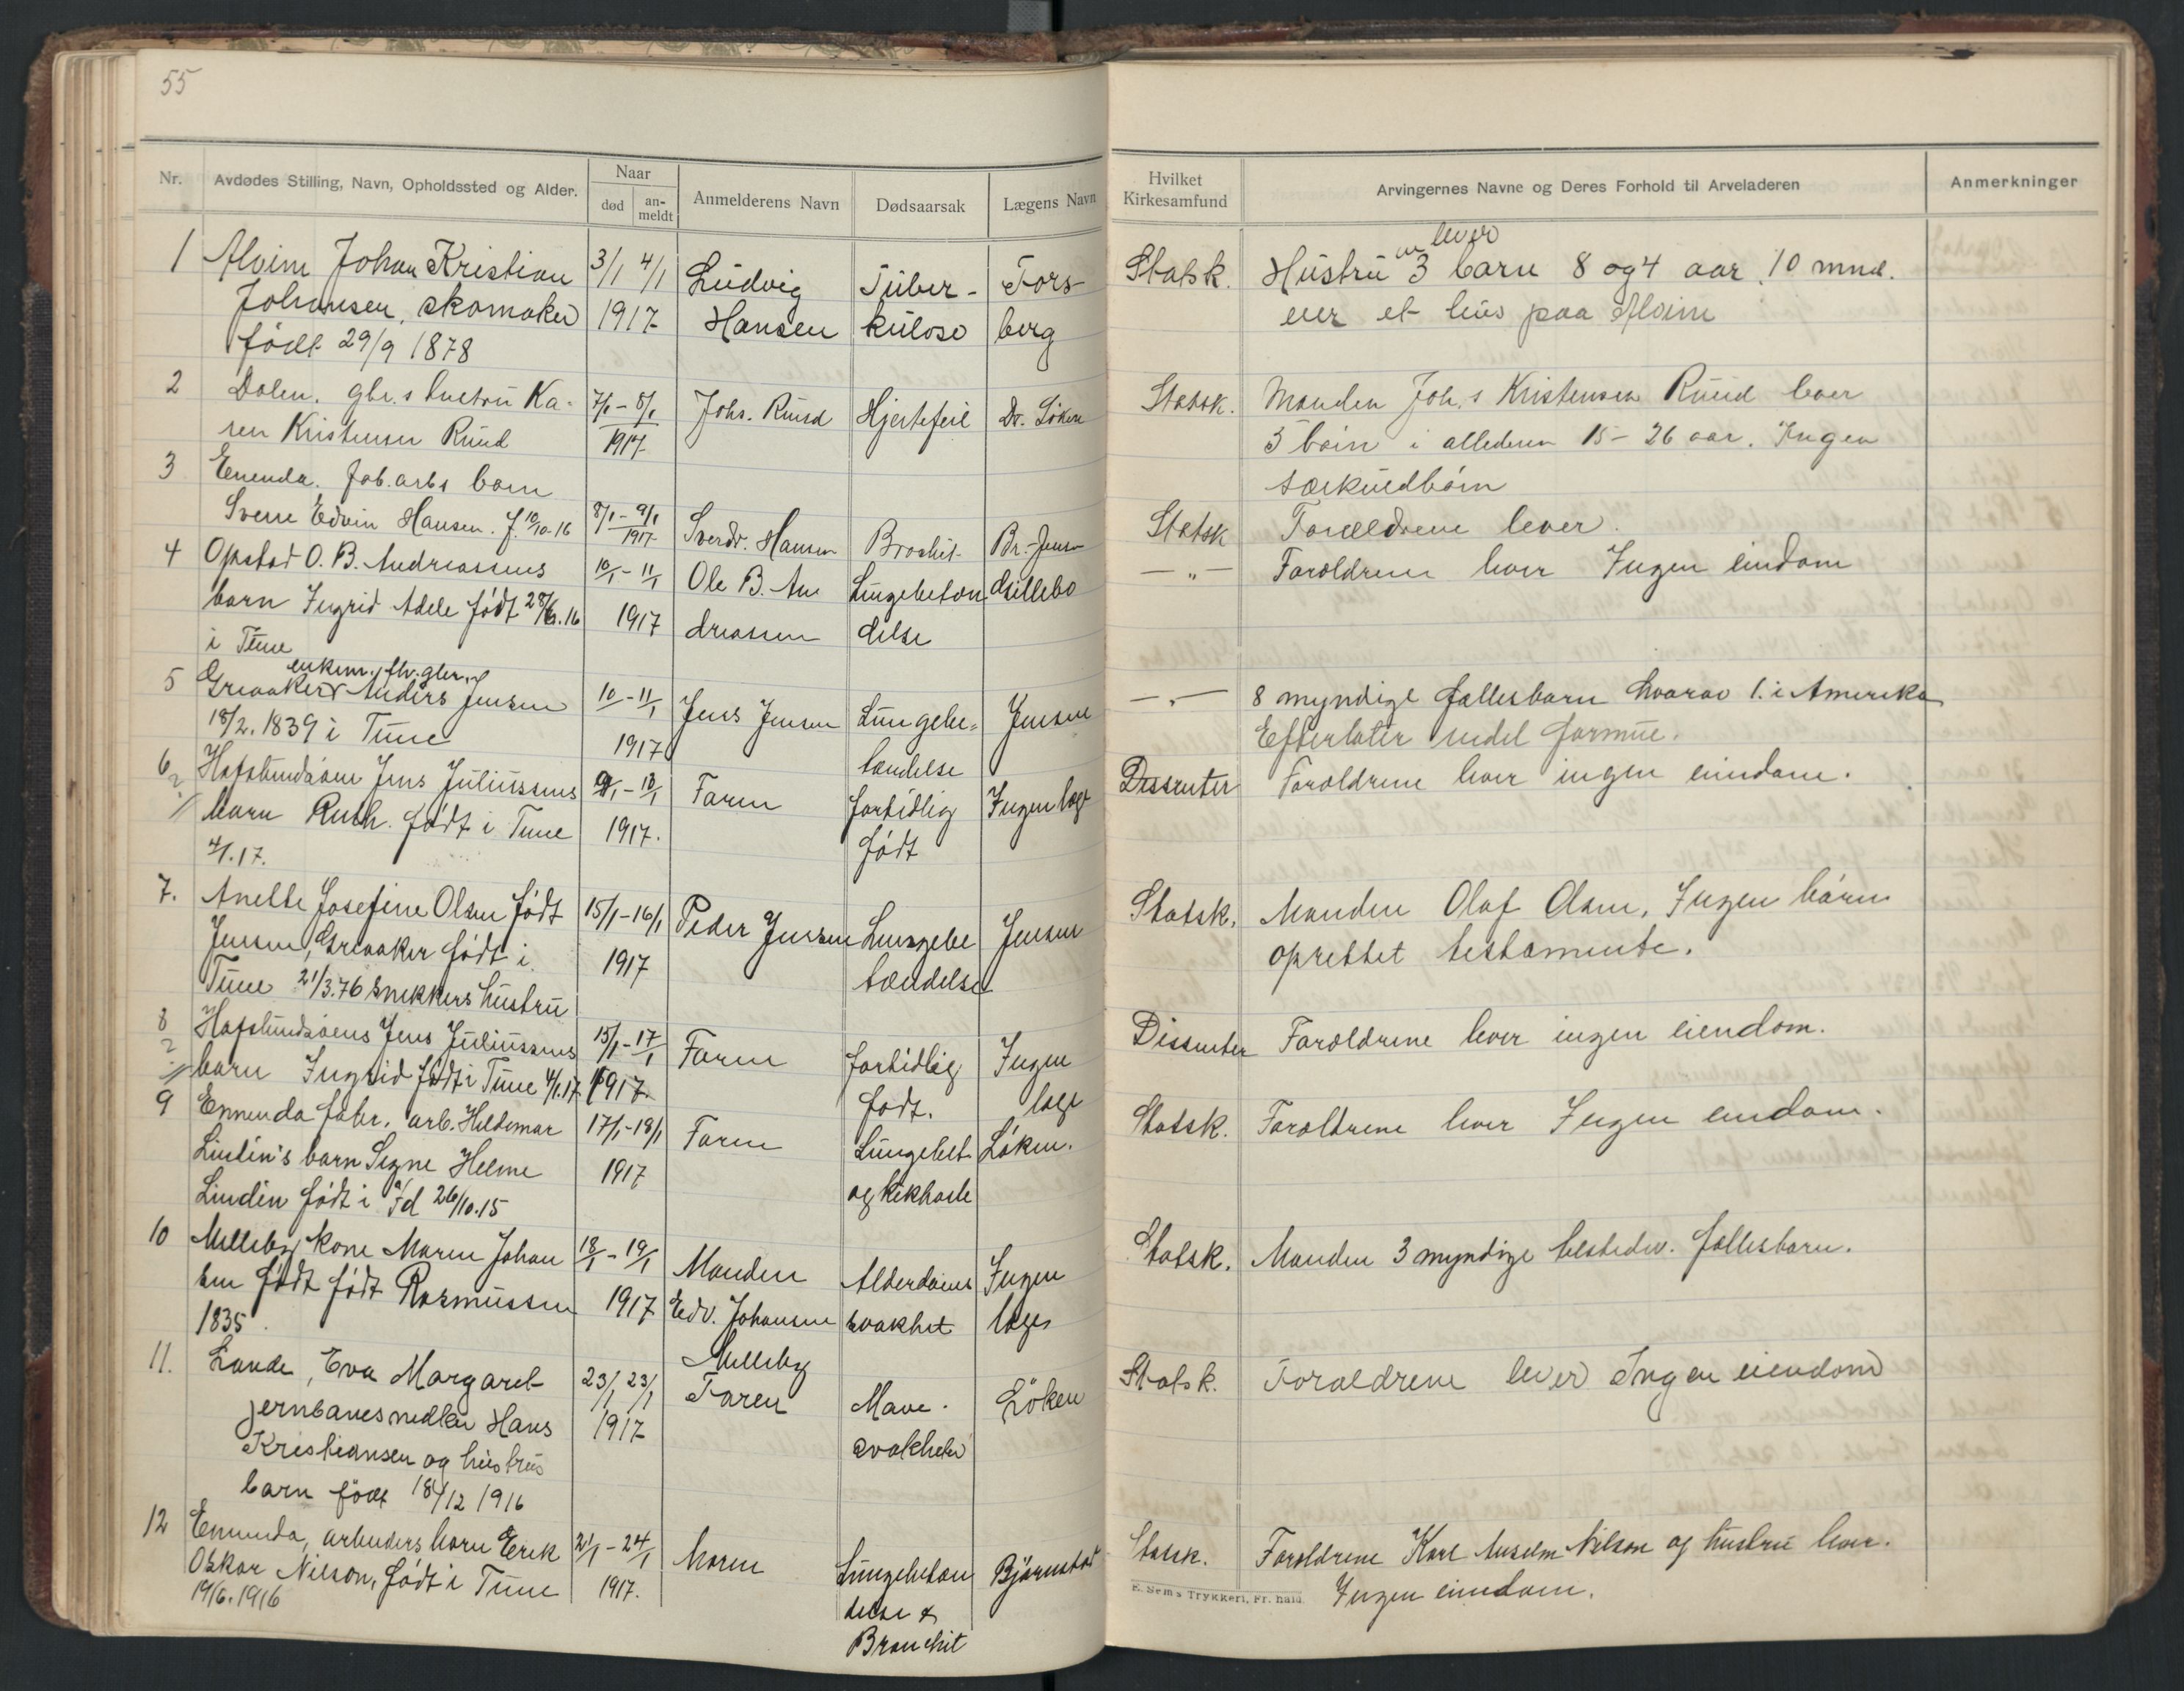 55
Nr.
Avdødes Stilling, Navn, Opholdssted og Alder.
Naar
død
an-
meldt
Anmelderens Navn
Dødsaarsak
Lægens Navn
Hvilket
Kirkesamfund
Arvingernes Navne og Deres Forhold til Arveladeren
Anmerkninger
1 Alvim Johan Kristian 3/1 4/1 Ludvig Tuber- Fors- Statsk. Hustru 3 barn 8 og 4 aar. 10 mnd.
lever
Johansen, skomaker 1917 Hansen kulose berg eier et hus paa Alvim
født 29/9 1878
2 Dolen. gbr.s hustru Ka- 7/1 - 8/1 Johs. Ruud Hjertefeil Dr. Löken Statsk. Manden Joh.s Kristensen Ruud lever
ren Kristensen Ruud 1917 5 børn i alderen 15-26 aar. Ingen
særkuldbørn
3 Enenda. fab.arbs barn
Sverre Edvin Hansen. f. 10/10-16 8/1 - 9/1 1917 Sverdr. Hansen Br.-Jensen Statsk Forældrene lever.
4 Opstad O. B. Andreassens 10/1 - 11/1 Ole B. An Lungebetæn Gillebo —„— Forældrene lever Ingen eindom
barn Ingrid Adele født 28/6.16 1917 dreassen delse
i Tune
enkem. flv. gbr.
5 Greaaker Anders Jensen 10 - 11/1 Jens Jensen Lungebe= Jensen —„— 8 myndige fællesbarn hvorav 1. i Amerika
18/2. 1839 i Tune 1917 tændelse Efterlater endel formue.
6 Hafslundsøens Jens Juliussens 9/1 - 13/1 Faren fortidlig Ingen læge Dissenter Forældrene lever ingen eiendom.
2 barn Ruth. født i Tune 1917. født
4/1.17.
7. Anette Josefine Olsen født 15/1 - 16/1 Peder Jensen Lungebe Jensen Statsk. Manden Olaf Olsen, Ingen børn
Jensen, Greaaker født i 1917 tændelse oprettet testamente.
Tune 21/3.76 snekkers hustru
8 Hafslundsøens Jens Juliussens 15/1 - 17/1 Faren fortidlig Ingen Dissenter Forældrene lever ingen eiendom.
2 barn Ingrid født i Tune 4/1.17. 1917. født. læge
9 Ennenda fabr. arb. Hildemar 17/1 - 18/1 Faren Lungebet. Løken. Statsk. Forældrene lever Ingen eiendom.
Lindén's barn Signe Helene 1917 og kikhoste
Lindén født i Id 26/10.15
10 Melleby kone Maren Johan 18/1 - 19/1 Manden Alderdoms Ingen Statsk. Manden 3 myndige tilstedev. fællesbarn.
sen født født Rasmussen 1917 Edv. Johansen svakhet læge
1835. Melleby
11. Lande, Eva Margaret 23/1 23/1 Faren Mave. Löken Statsk. Foraeldrene lever Ingen eiendom
jernbanesmeden Hans 1917 svakhed
Kristiansen og hustrus
barn født 18/12 1916
12 Ennenda, arbeiders barn Erik 21/1 - 24/1 Moren Lungebetæn Björnstad Statsk. Forældrene Karl Anselm Nilson og hustru lever.
Oskar Nilson, født i Tune 1917. delse & Ingen eiendom.
19/6.1916 Bronchit
E. Sem's Trykkeri, Fr. hald